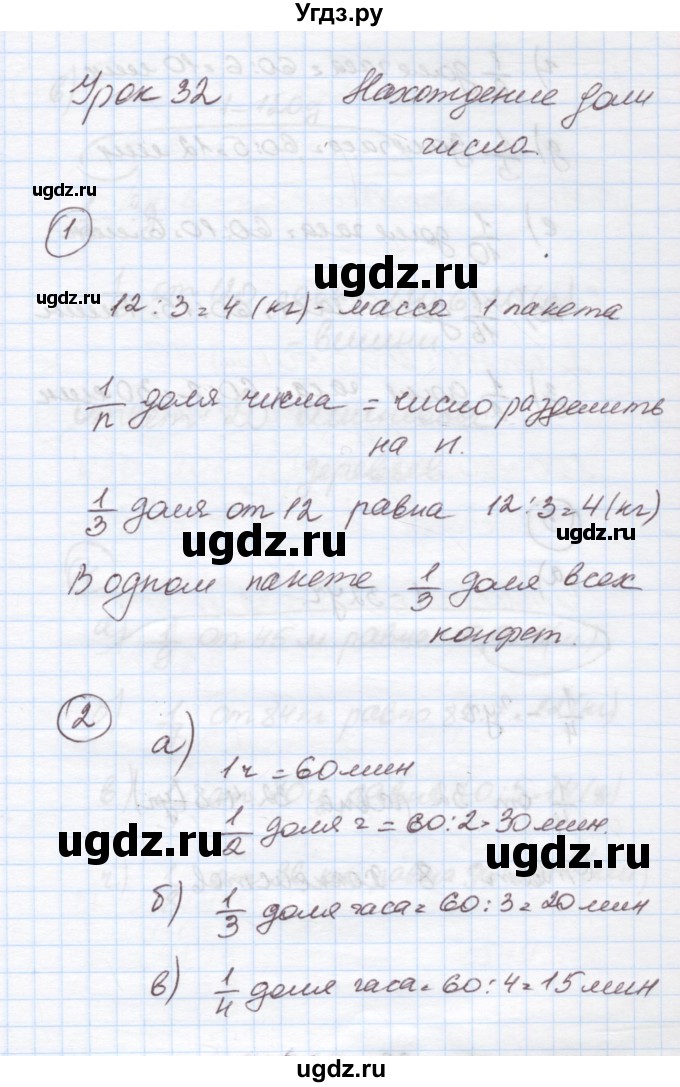 Угдз.ру
Урок 32 Нахождение доли
числа.
ugdz.ru
1
ugdz.ru
ugdz.ru
12 : 3 = 4 (кг) - масса 1 пакета
1/n доля числа = число разделить
на n.
1/3 доля от 12 равна 12 : 3 = 4 (кг)
ugdz.ru
ugdz.ru
В одном пакете 1/3 доля всех
конфет.
2
а)
1ч = 60 мин
1/2 доля ч = 60 : 2 = 30 мин.
ugdz.ru
ugdz.ru
б) 1/3 доля часа = 60 : 3 = 20 мин
в) 1/4 доля часа = 60 : 4 = 15 мин
ugdz.ru